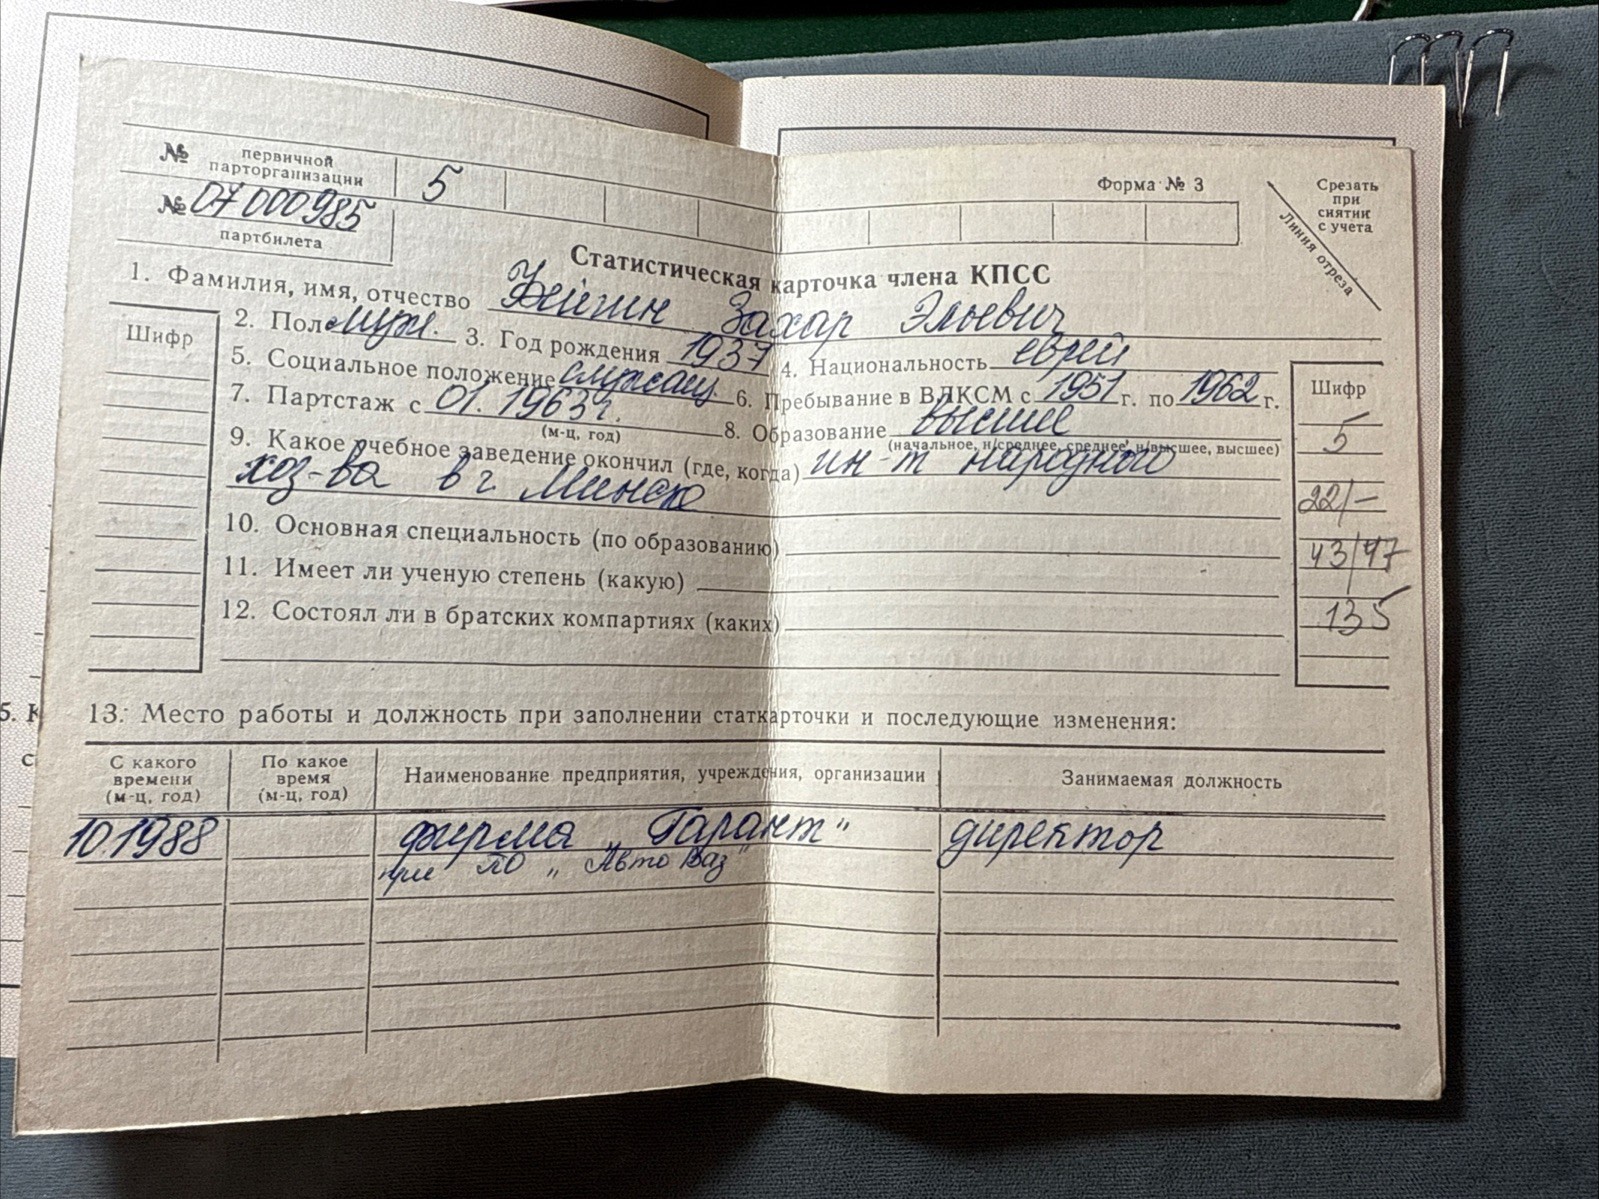 № первичной парторганизации 5
Форма № 3
Срезать
при
снятии
с учета
Линия отреза
№ 07000985
партбилета
Статистическая карточка члена КПСС
1. Фамилия, имя, отчество Фейгин Захар Эльевич
Шифр
2. Пол муж. 3. Год рождения 1937 4. Национальность еврей
5. Социальное положение служащ. 6. Пребывание в ВЛКСМ с 1951 г. по 1962 г.
Шифр
7. Партстаж с 01. 1963 г. 8. Образование высшее
(м-ц, год) (начальное, н/среднее, среднее, н/высшее, высшее)
5
9. Какое учебное заведение окончил (где, когда) ин-т народного
хоз-ва в г. Минске
22/-
10. Основная специальность (по образованию)
43/47
11. Имеет ли ученую степень (какую)
12. Состоял ли в братских компартиях (каких)
135
5. К
с
13. Место работы и должность при заполнении статкарточки и последующие изменения:
С какого времени (м-ц, год) По какое время (м-ц, год) Наименование предприятия, учреждения, организации Занимаемая должность
10.1988 фирма „Гарант" директор
при ПО „АвтоВаз"